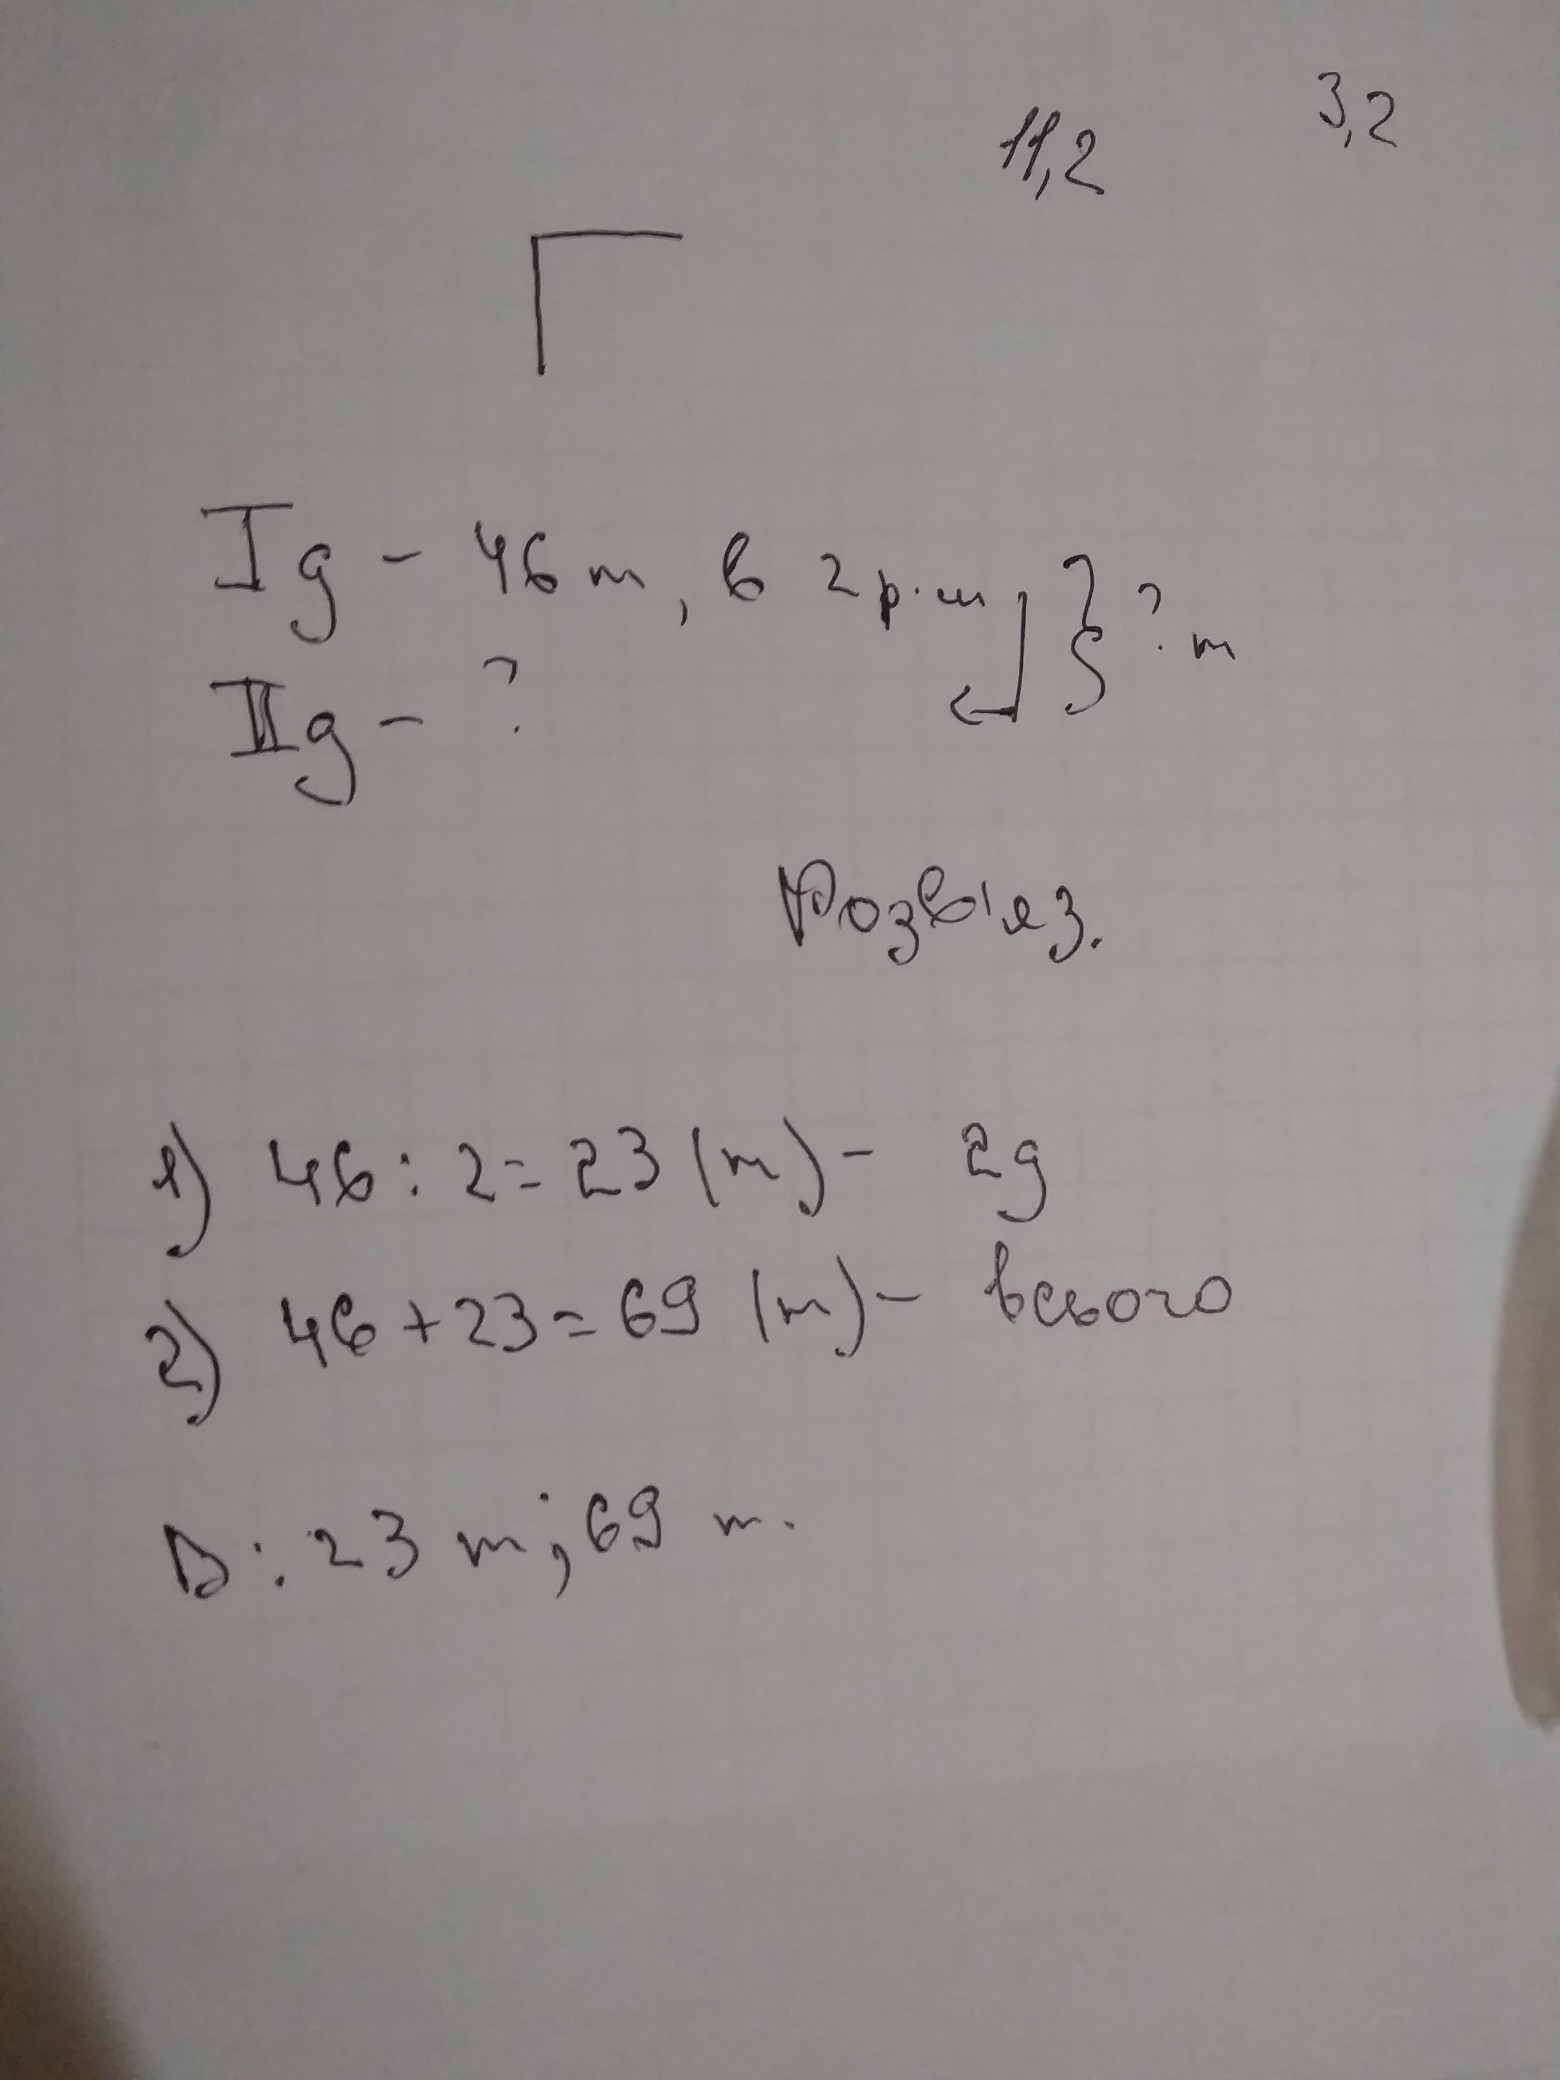 11,2 3,2
I д - 46 т, в 2 р. ш } ? т
II д - ?
Розв'яз.
1) 46 : 2 = 23 (т) - 2д
2) 46 + 23 = 69 (т) - всього
В: 23 т; 69 т.